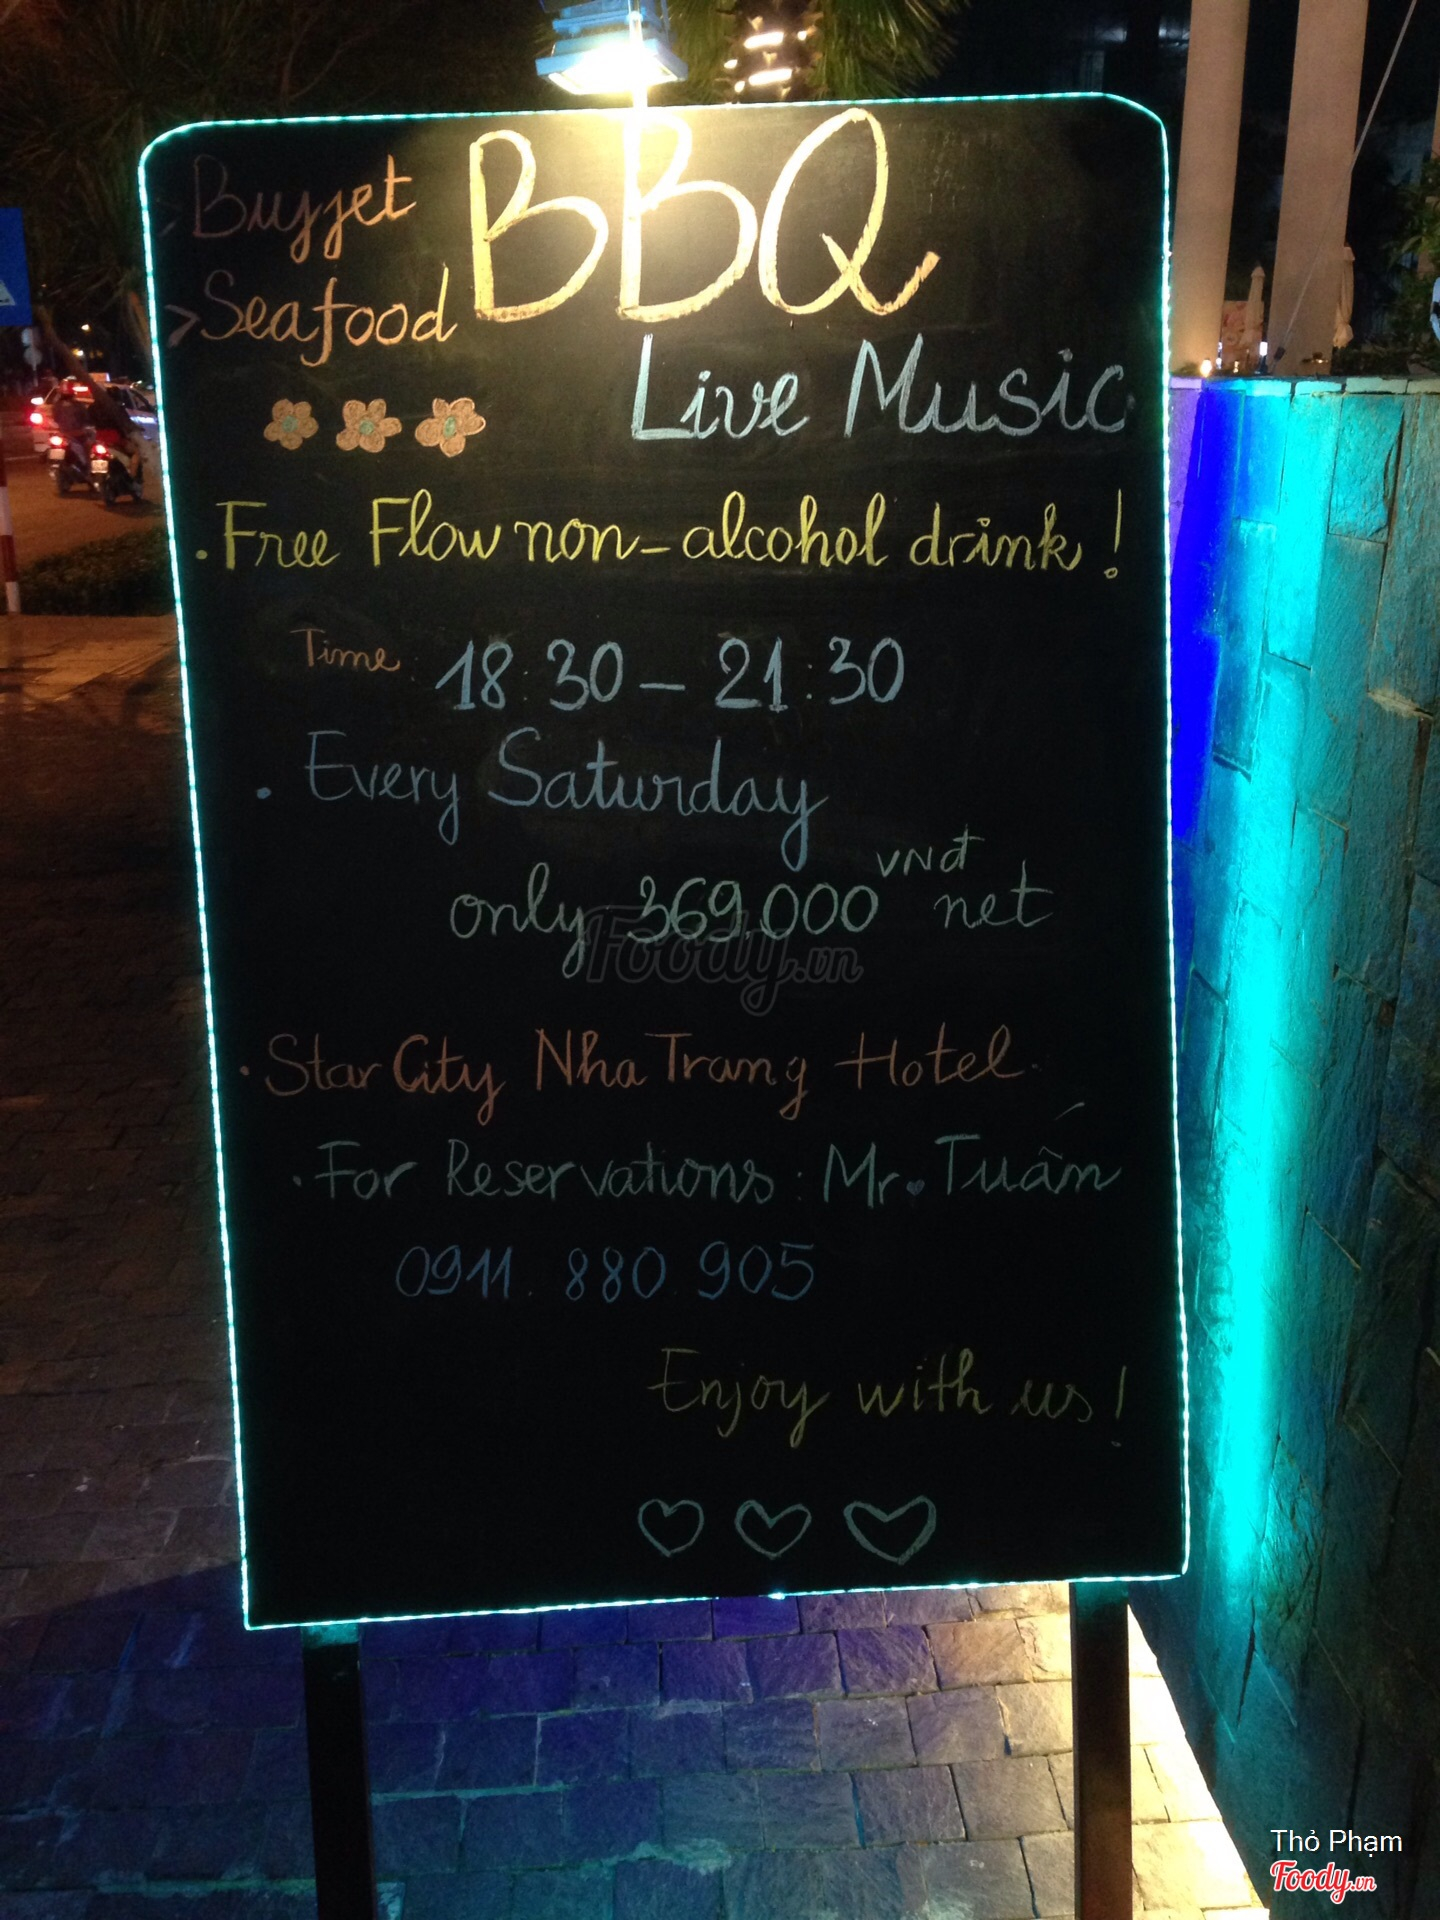 > Buffet BBQ
> Seafood
Live Music
. Free Flow non-alcohol drink !
Time : 18:30 - 21:30
. Every Saturday
only 369,000 VNđ net
Foody.vn
. Star City Nha Trang Hotel.
. For Reservations : Mr. Tuấn
0911. 880. 905
Enjoy with us !
Thỏ Phạm
Foody.vn